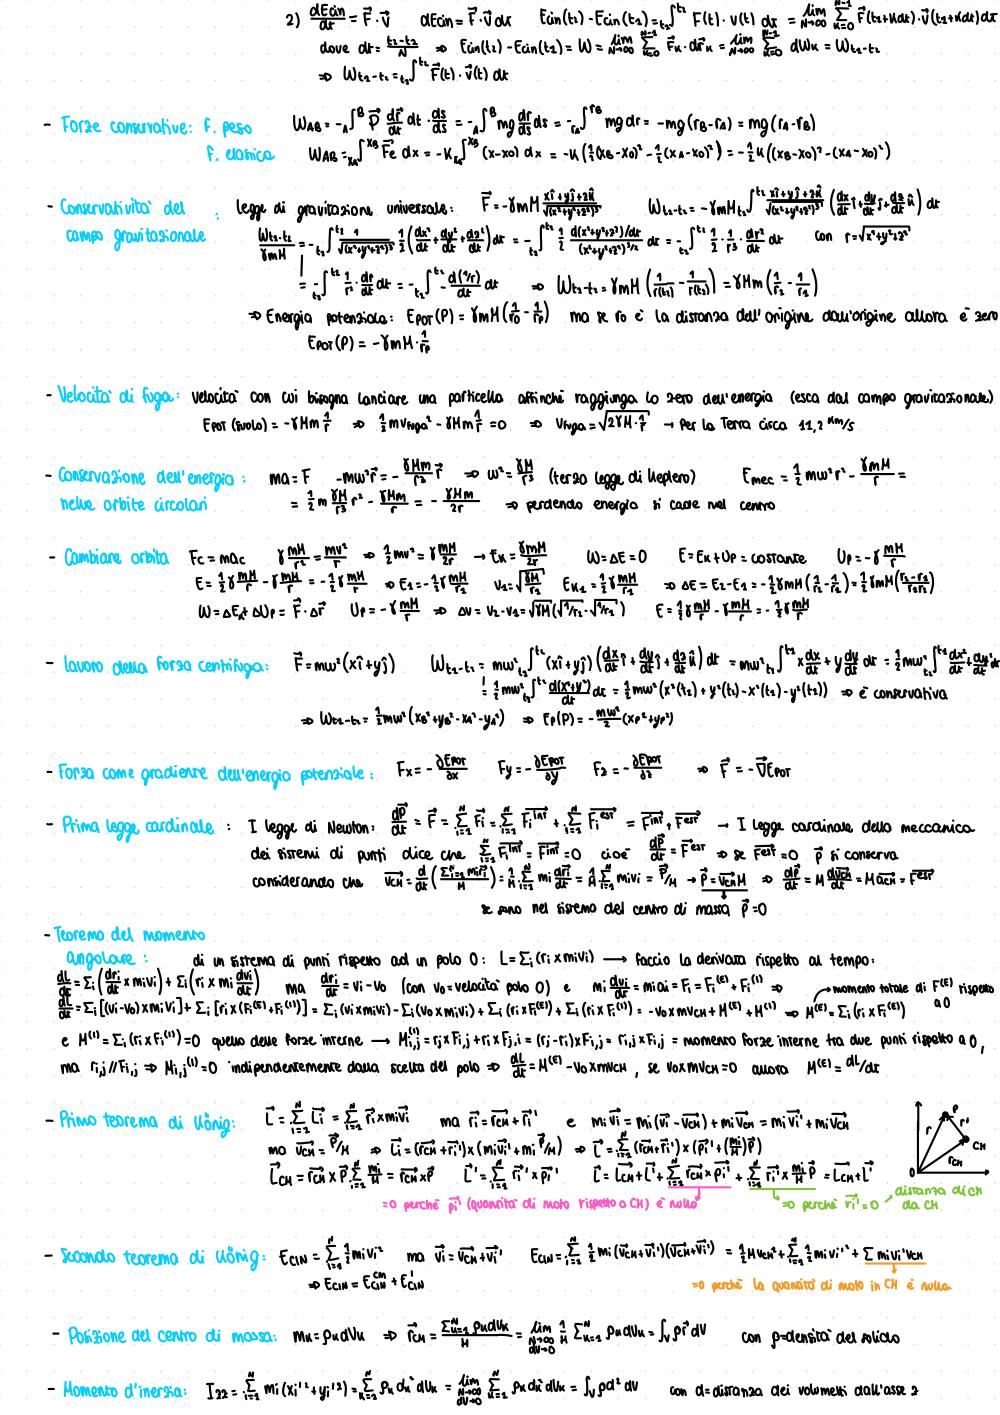 2) dEcin/dt = F⃗·v⃗ dEcin = F⃗·v⃗ dt Ecin(t2)-Ecin(t1) = t1∫t2 F(t)·v(t) dt = lim N→∞ Σ k=0 N-1 F⃗(t1+kdt)·v⃗(t1+kdt)dt
dove dt = (t2-t1)/N ⇒ Ecin(t2)-Ecin(t1) = W = lim N→∞ Σ k=0 N-1 F⃗k·dr⃗k = lim N→∞ Σ k=0 N-1 dWk = Wt1-t2
⇒ Wt1-t2 = t1∫t2 F⃗(t)·v⃗(t) dt
- Forze conservative: f. peso WAB = -A∫B P⃗ dr⃗/dt dt · ds/ds = -A∫B mg dr/ds ds = -rA∫rB mg dr = -mg(rB-rA) = mg(rA-rB)
f. elastica WAB = xA∫xB F⃗e dx = -K xA∫xB (x-x0) dx = -K(½(xB-x0)²-½(xA-x0)²) = -½K((xB-x0)²-(xA-x0)²)
- Conservatività del : legge di gravitazione universale: F⃗ = -γmM (xî+yĵ+zk̂)/√(x²+y²+z²)³ Wt1-t2 = -γmM t1∫t2 (xî+yĵ+zk̂)/√(x²+y²+z²)³ (dx/dt î + dy/dt ĵ + dz/dt k̂) dt
campo gravitazionale Wt1-t2/γmM = -t1∫t2 1/√(x²+y²+z²)³ ½(dx²/dt+dy²/dt+dz²/dt) dt = -t1∫t2 ½ (d(x²+y²+z²)/dt)/(x²+y²+z²)^3/2 dt = -t1∫t2 ½·1/r³·dr²/dt dt con r=√x²+y²+z²
= -t1∫t2 1/r²·dr/dt dt = -t1∫t2 -d(1/r)/dt dt ⇒ Wt1-t2 = γmM(1/r(t2) - 1/r(t1)) = γMm(1/r2 - 1/r1)
⇒ Energia potenziale: EPOT(P) = γmM(1/r0 - 1/rP) ma se r0 è la distanza dell'origine dall'origine allora è zero
EPOT(P) = -γmM·1/rP
- Velocità di fuga: velocità con cui bisogna lanciare una particella affinché raggiunga lo zero dell'energia (esca dal campo gravitazionale)
EPOT (suolo) = -γMm 1/r ⇒ ½mvfuga² - γMm 1/r = 0 ⇒ vfuga = √2γM·1/r → Per la Terra circa 11,2 km/s
- Conservazione dell'energia: ma = F -mω²r⃗ = -γMm/r³ r⃗ ⇒ ω² = γM/r³ (terza legge di Keplero) Emec = ½mω²r² - γmM/r =
nelle orbite circolari = ½m γM/r³ r² - γMm/r = -γMm/2r ⇒ perdendo energia si cade nel centro
- Cambiare orbita Fc = mac γmM/r² = mv²/r ⇒ ½mv² = γmM/2r → Ek = γmM/2r W=ΔE=0 E=Ek+Up=costante Up=-γmM/r
E = ½γmM/r - γmM/r = -½γmM/r ⇒ E1 = -½γmM/r1 v1 = √γM/r1 Ek1 = ½γmM/r1 ⇒ ΔE = E2-E1 = -½γmM(1/r2-1/r1) = ½γmM((r2-r1)/r2r1)
W = ΔEk+ΔUp = F⃗·Δr⃗ Up = -γmM/r ⇒ Δv = v2-v1 = √γM(√1/r2-√1/r1) E = ½γmM/r - γmM/r = -½γmM/r
- lavoro della forza centrifuga: F⃗ = mω²(xî+yĵ) Wt1-t2 = mω² t1∫t2 (xî+yĵ)(dx/dt î+dy/dt ĵ+dz/dt k̂) dt = mω² t1∫t2 x dx/dt + y dy/dt dt = ½mω² t1∫t2 dx²/dt+dy²/dt dt
= ½mω² t1∫t2 d(x²+y²)/dt dt = ½mω²(x²(t2)+y²(t2)-x²(t1)-y²(t1)) ⇒ è conservativa
⇒ Wt1-t2 = ½mω²(xB²+yB²-xA²-yA²) ⇒ Ep(P) = -mω²/2 (xP²+yP²)
- Forza come gradiente dell'energia potenziale: Fx = -∂EPOT/∂x Fy = -∂EPOT/∂y Fz = -∂EPOT/∂z ⇒ F⃗ = -∇⃗EPOT
- Prima legge cardinale : I legge di Newton: dP⃗/dt = F⃗ = Σ i=1 N F⃗i = Σ i=1 N F⃗i^int + Σ i=1 N F⃗i^est = F⃗int + F⃗est → I legge cardinale della meccanica
dei sistemi di punti dice che Σ i=1 N F⃗i^int = F⃗int = 0 cioè dP⃗/dt = F⃗est ⇒ se F⃗est = 0 p⃗ si conserva
considerando che v⃗CM = d/dt(Σ i=1 N mir⃗i/M) = 1/M Σ i=1 N mi dr⃗i/dt = 1/M Σ i=1 N mivi = P⃗/M → P⃗ = v⃗CM M ⇒ dP⃗/dt = M dv⃗CM/dt = Ma⃗CM = F⃗est
se sono nel sistema del centro di massa p⃗=0
- Teorema del momento
angolare : di un sistema di punti rispetto ad un polo O: L = Σi(ri x mivi) → faccio la derivata rispetto al tempo:
dL/dt = Σi(dri/dt x mivi) + Σi(ri x mi dvi/dt) ma dri/dt = vi-vo (con vo=velocità polo O) e mi dvi/dt = miai = Fi = Fi^(E) + Fi^(I) ⇒ momento totale di F^(E) rispetto a O
dL/dt = Σi[(vi-vo)xmivi] + Σi[ri x(Fi^(E)+Fi^(I))] = Σi(vi x mivi) - Σi(vo x mivi) + Σi(ri x Fi^(E)) + Σi(ri x Fi^(I)) = -vo x mvCM + M^(E) + M^(I) ⇒ M^(E) = Σi(ri x Fi^(E))
e M^(I) = Σi(ri x Fi^(I)) = 0 quello delle forze interne → Mi,j^(I) = rj x Fi,j + ri x Fj,i = (rj-ri)xFi,j = ri,j x Fi,j = momento forze interne tra due punti rispetto a O,
ma ri,j // Fi,j ⇒ Mi,j^(I) = 0 indipendentemente dalla scelta del polo ⇒ dL/dt = M^(E) - vo x mvCM, se vo x mvCM = 0 allora M^(E) = dL/dt
- Primo teorema di König: L⃗ = Σ i=1 N L⃗i = Σ i=1 N r⃗i x miv⃗i ma r⃗i = r⃗CM + r⃗i' e miv⃗i = mi(v⃗i-v⃗CM) + miv⃗CM = miv⃗i' + miv⃗CM
ma v⃗CM = P⃗/M ⇒ L⃗i = (r⃗CM+r⃗i')x(miv⃗i'+mi P⃗/M) ⇒ L⃗ = Σ i=1 N (r⃗CM+r⃗i')x(p⃗i'+(mi/M)P⃗)
L⃗CM = r⃗CM x P⃗ Σ i=1 N mi/M = r⃗CM x P⃗ L⃗' = Σ i=1 N r⃗i' x p⃗i' L⃗ = L⃗CM + L⃗' + Σ i=1 N r⃗CM x p⃗i' + Σ i=1 N r⃗i' x mi/M P⃗ = L⃗CM + L⃗'
=0 perché p⃗i' (quantità di moto rispetto a CM) è nulla =0 perché r⃗i'=0 distanza di CM da CM
P r r' CM rCM O
- Secondo teorema di König: ECIN = Σ i=1 N ½mivi² ma v⃗i = v⃗CM+v⃗i' ECIN = Σ i=1 N ½ mi(v⃗CM+v⃗i')(v⃗CM+v⃗i') = ½MvCM² + Σ i=1 N ½mivi'² + Σ mivi'vCM
⇒ ECIN = ECIN^CM + ECIN' =0 perché la quantità di moto in CM è nulla
- Posizione del centro di massa: mk = ρkdVk ⇒ r⃗CM = Σ k=1 N ρkdVk/M = lim N→∞ dV→0 1/M Σ k=1 N ρkdVk = ∫V ρr⃗ dV con ρ=densità del solido
- Momento d'inerzia: Izz = Σ i=1 N mi(xi'²+yi'²) = Σ k=1 N ρk dk² dVk = lim N→∞ dV→0 Σ k=1 N ρk dk² dVk = ∫V ρd² dV con d=distanza dei volumetti dall'asse z